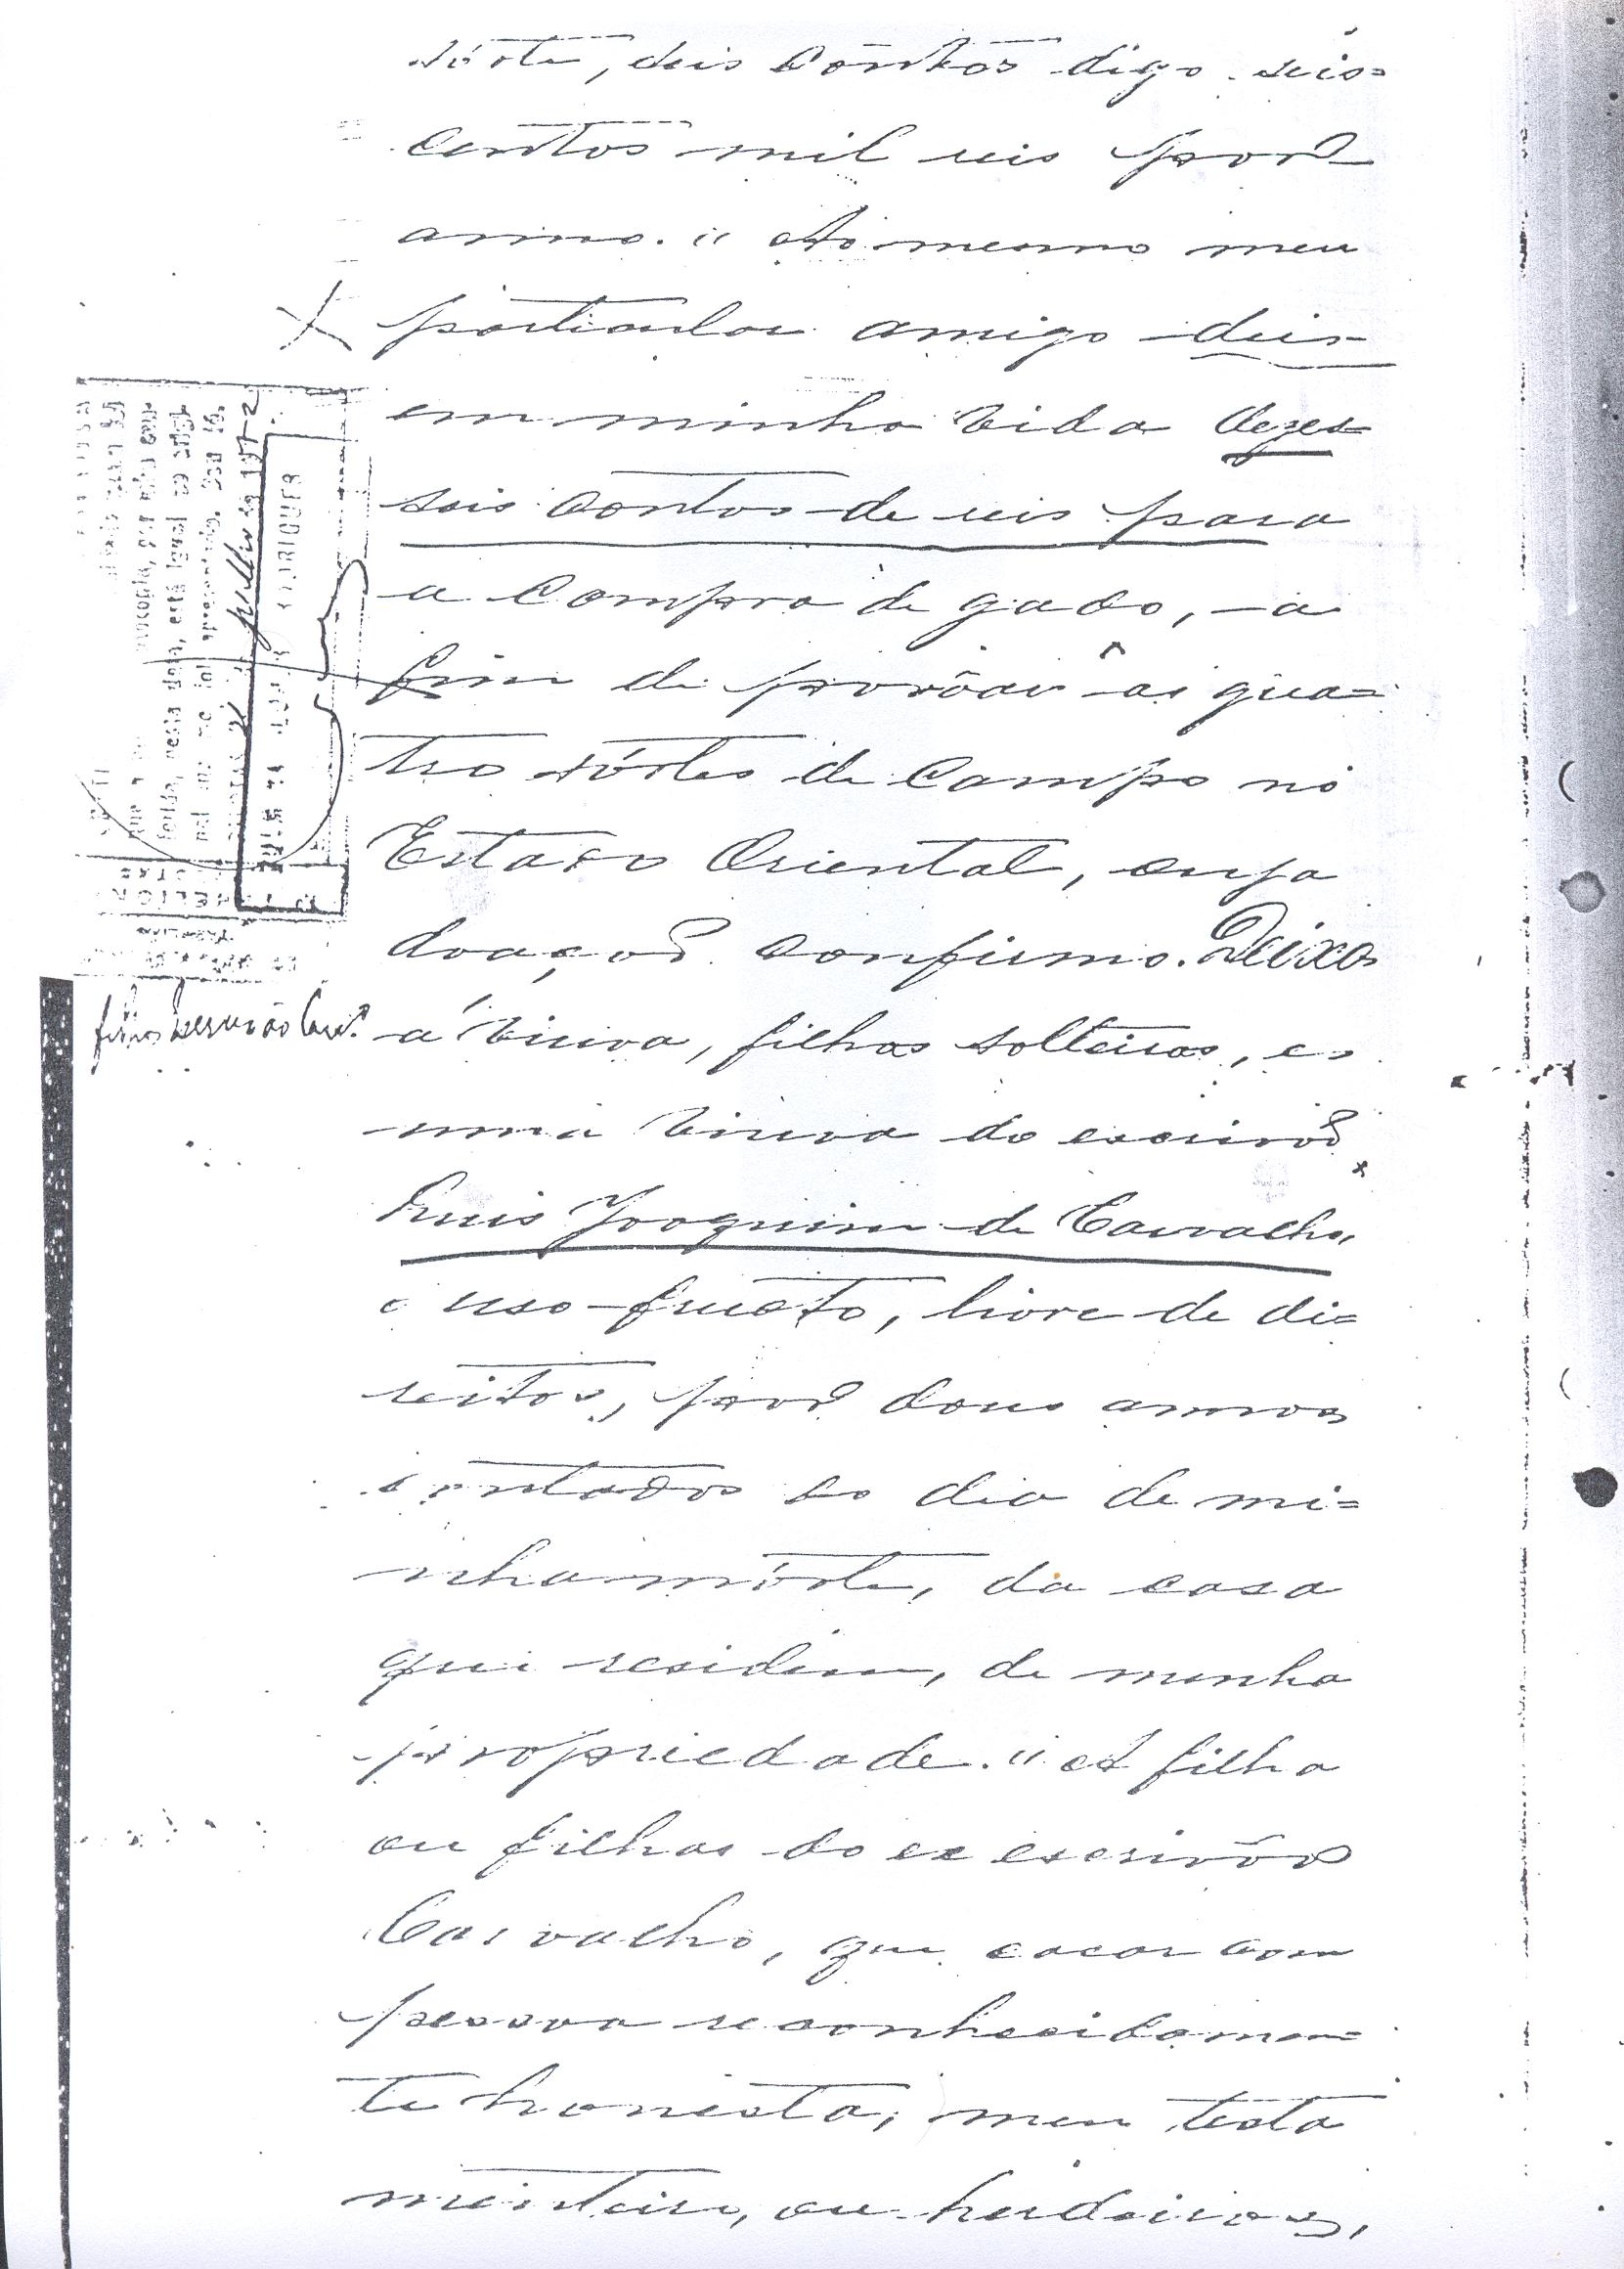 sórte, deis contos digo seis=
centos mil reis por
anno. " Ao mesmo meu
particular amigo dei
em minha vida dezes=
seis contos de reis para
a compra de gado, a
fim de povoar as qua=
tro sórtes de campo no
Estado Oriental, cuja
doação confirmo. Deixo
á viuva, filhas solteiras, e
uma viuva do escrivão
Luis Joaquim de Carvalho,
o uso-fructo, livre de di=
reitos, por dous annos
contados do dia de mi=
nha mórte, da casa
que residem, de minha
propriedade. " A filha
ou filhas do ex escrivão
Carvalho, que casar com
pessoa reconhecidamen=
te honesta, meu testa
menteiro, ou herdeiros,